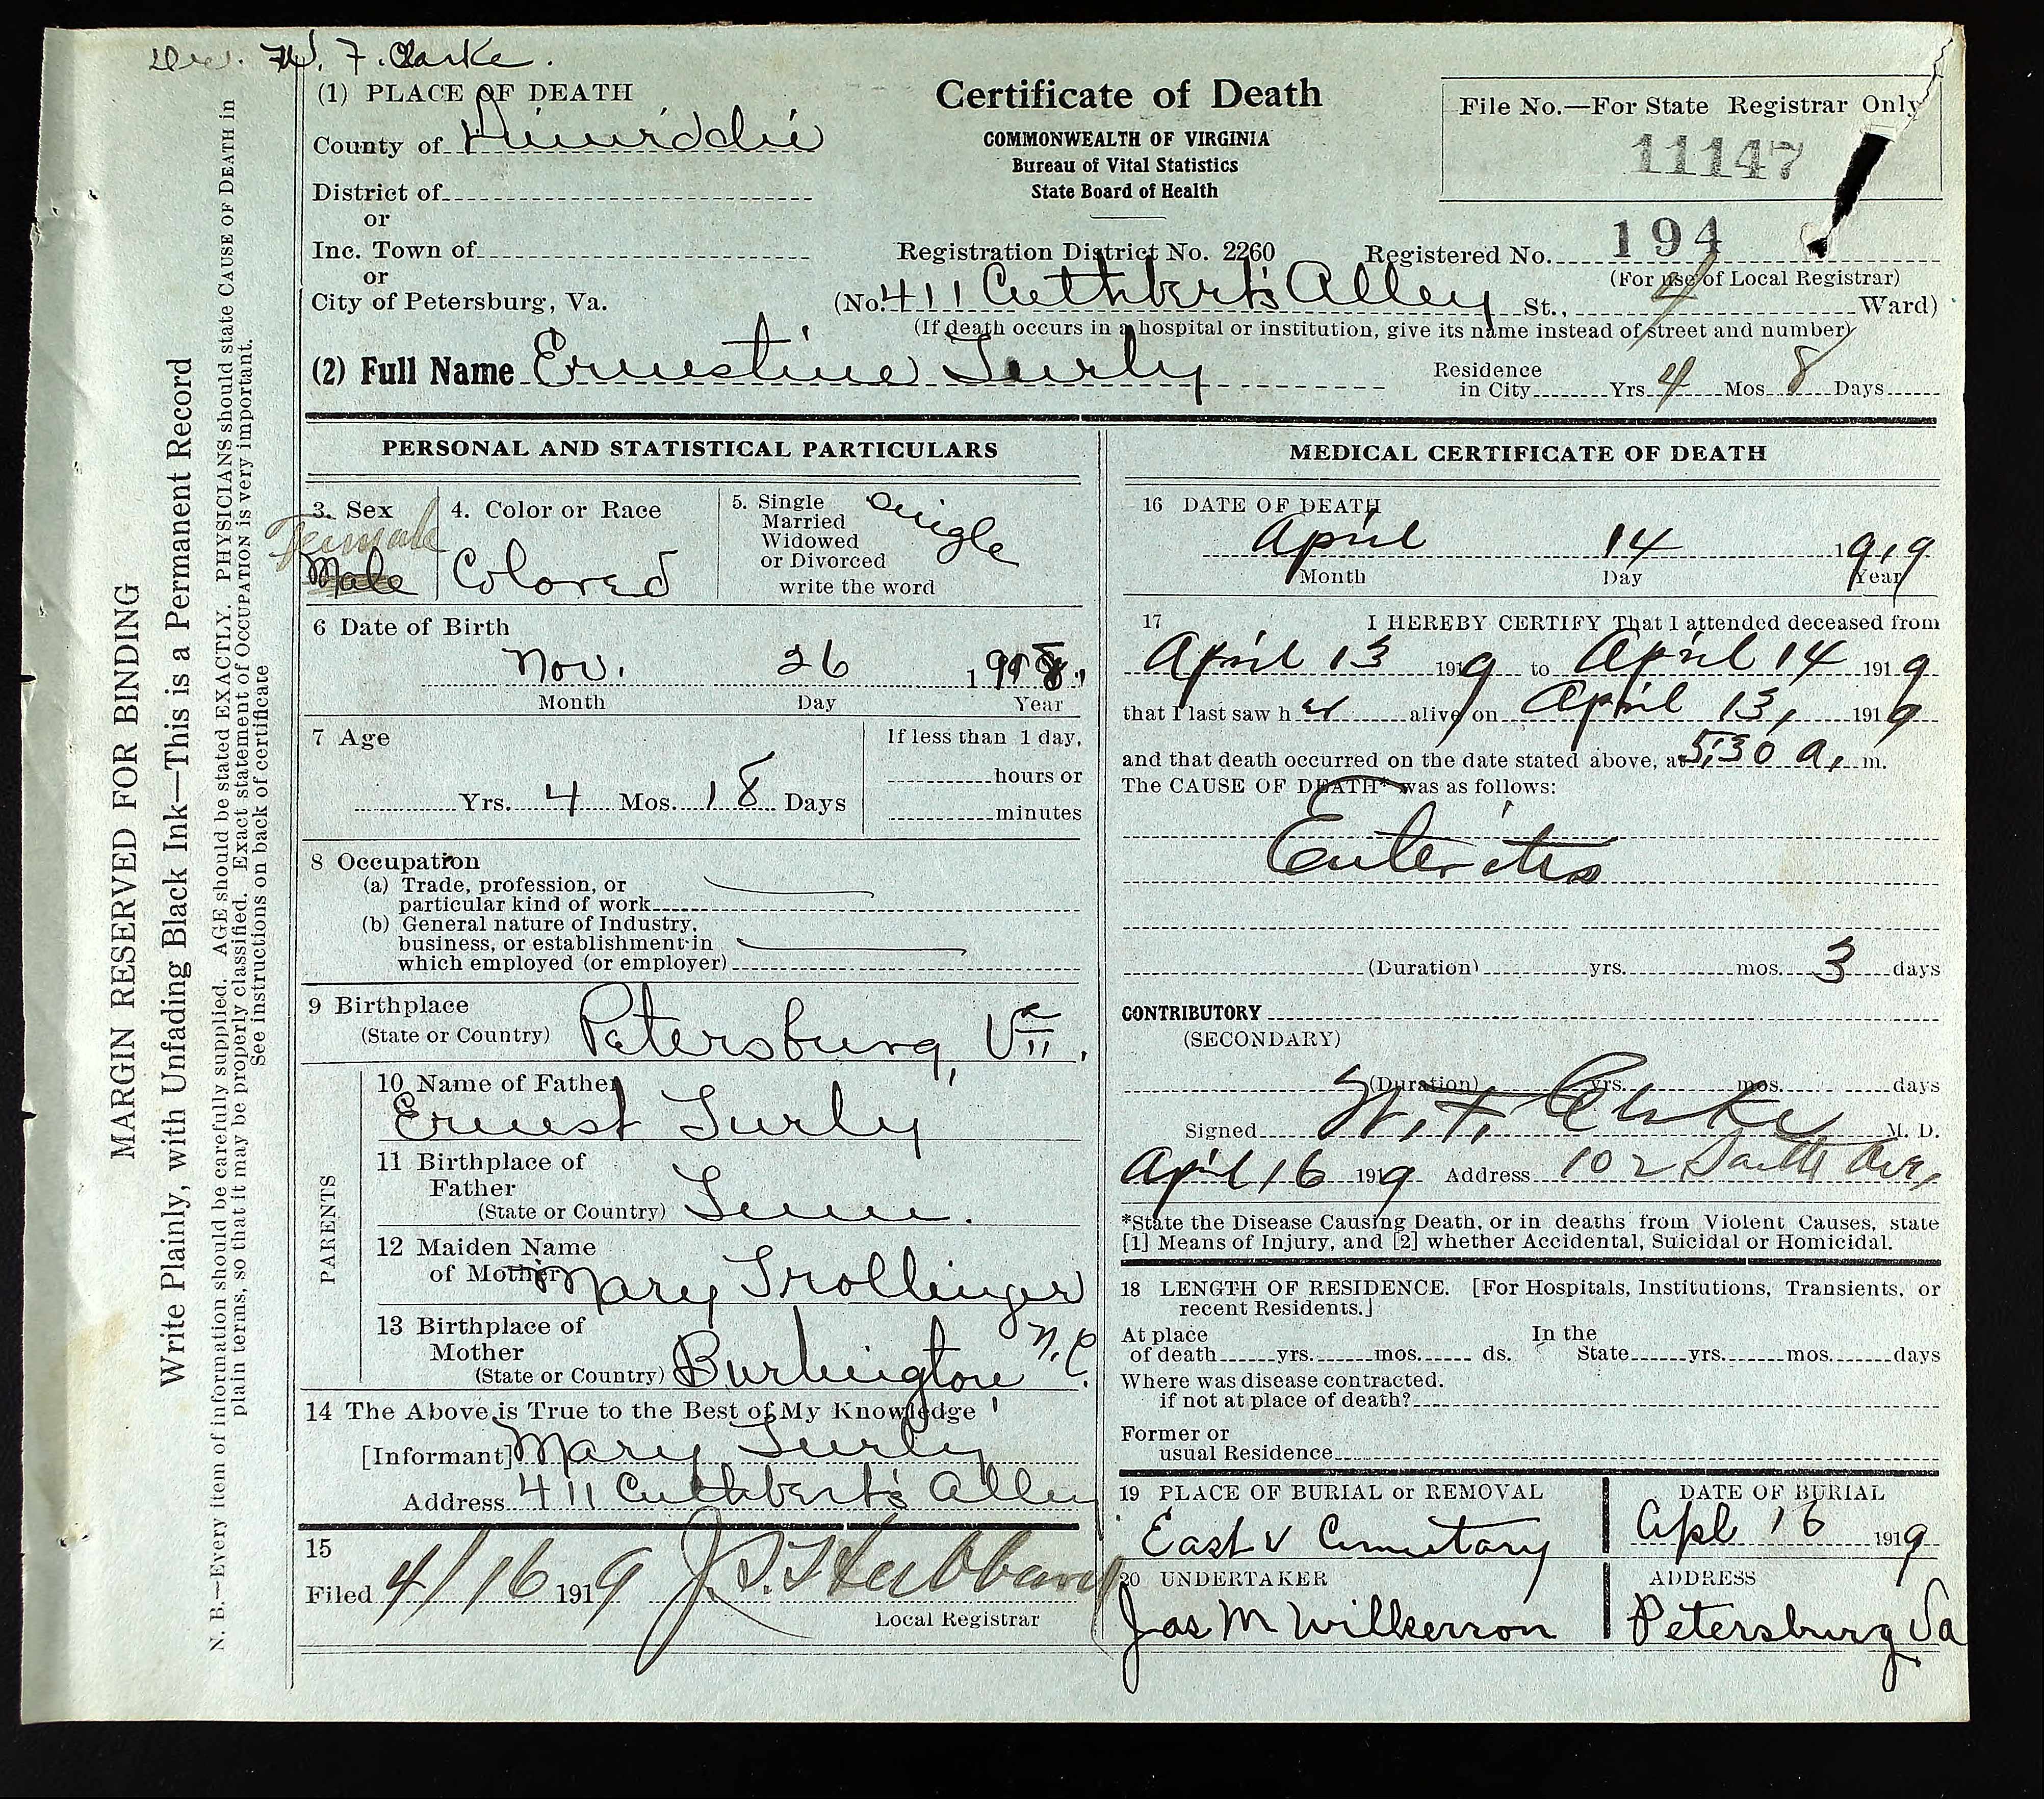 Dr. W. F. Clarke.
(1) PLACE OF DEATH
County of Dinwiddie
District of
or
Inc. Town of
or
City of Petersburg, Va.
Certificate of Death
COMMONWEALTH OF VIRGINIA
Bureau of Vital Statistics
State Board of Health
File No.—For State Registrar Only
11147
Registration District No. 2260 Registered No. 194
(For use of Local Registrar)
(No. 411 Cuthbert's Alley St., 4 Ward)
(If death occurs in a hospital or institution, give its name instead of street and number)
(2) Full Name Ernestine Turly
Residence
in City Yrs. 4 Mos. 8 Days
PERSONAL AND STATISTICAL PARTICULARS
3. Sex
Female
Male
4. Color or Race
Colored
5. Single
Married
Widowed
or Divorced
write the word
Single
6 Date of Birth
Nov. 26 1918.
Month Day Year
7 Age
Yrs. 4 Mos. 18 Days
If less than 1 day,
hours or
minutes
8 Occupation
(a) Trade, profession, or
particular kind of work
(b) General nature of Industry,
business, or establishment in
which employed (or employer)
9 Birthplace
(State or Country) Petersburg, Va.
PARENTS
10 Name of Father
Ernest Turly
11 Birthplace of
Father
(State or Country) Tenn.
12 Maiden Name
of Mother Mary Trollinger
13 Birthplace of
Mother
(State or Country) Burlington N.C.
14 The Above is True to the Best of My Knowledge
[Informant] Mary Turly
Address 411 Cuthbert's Alley
15
Filed 4/16 1919
Local Registrar
MEDICAL CERTIFICATE OF DEATH
16 DATE OF DEATH
April 14 1919
Month Day Year
17 I HEREBY CERTIFY That I attended deceased from
April 13 1919 to April 14 1919
that I last saw her alive on April 13, 1919
and that death occurred on the date stated above, at 5:30 a, m.
The CAUSE OF DEATH* was as follows:
Enteritis
(Duration) yrs. mos. 3 days
CONTRIBUTORY
(SECONDARY)
(Duration) yrs. mos. days
Signed W. F. Clarke M. D.
April 16 1919 Address 102 South Ave,
*State the Disease Causing Death, or in deaths from Violent Causes, state
[1] Means of Injury, and [2] whether Accidental, Suicidal or Homicidal.
18 LENGTH OF RESIDENCE. [For Hospitals, Institutions, Transients, or
recent Residents.]
At place
of death yrs. mos. ds.
In the
State yrs. mos. days
Where was disease contracted.
if not at place of death?
Former or
usual Residence
19 PLACE OF BURIAL or REMOVAL
East v Cemetary
DATE OF BURIAL
Apl 16 1919
20 UNDERTAKER
Jas M Wilkerson
ADDRESS
Petersburg Va
MARGIN RESERVED FOR BINDING
Write Plainly, with Unfading Black Ink—This is a Permanent Record
N. B.—Every item of information should be carefully supplied. AGE should be stated EXACTLY. PHYSICIANS should state CAUSE OF DEATH in
plain terms, so that it may be properly classified. Exact statement of OCCUPATION is very important.
See instructions on back of certificate